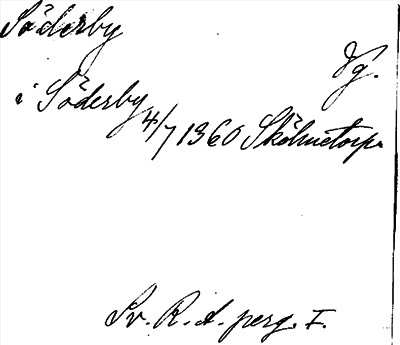 Söderby
Vg.
i Söderby 4/7 1360 Sköluetorp.
Sv. R. A. perg. I.